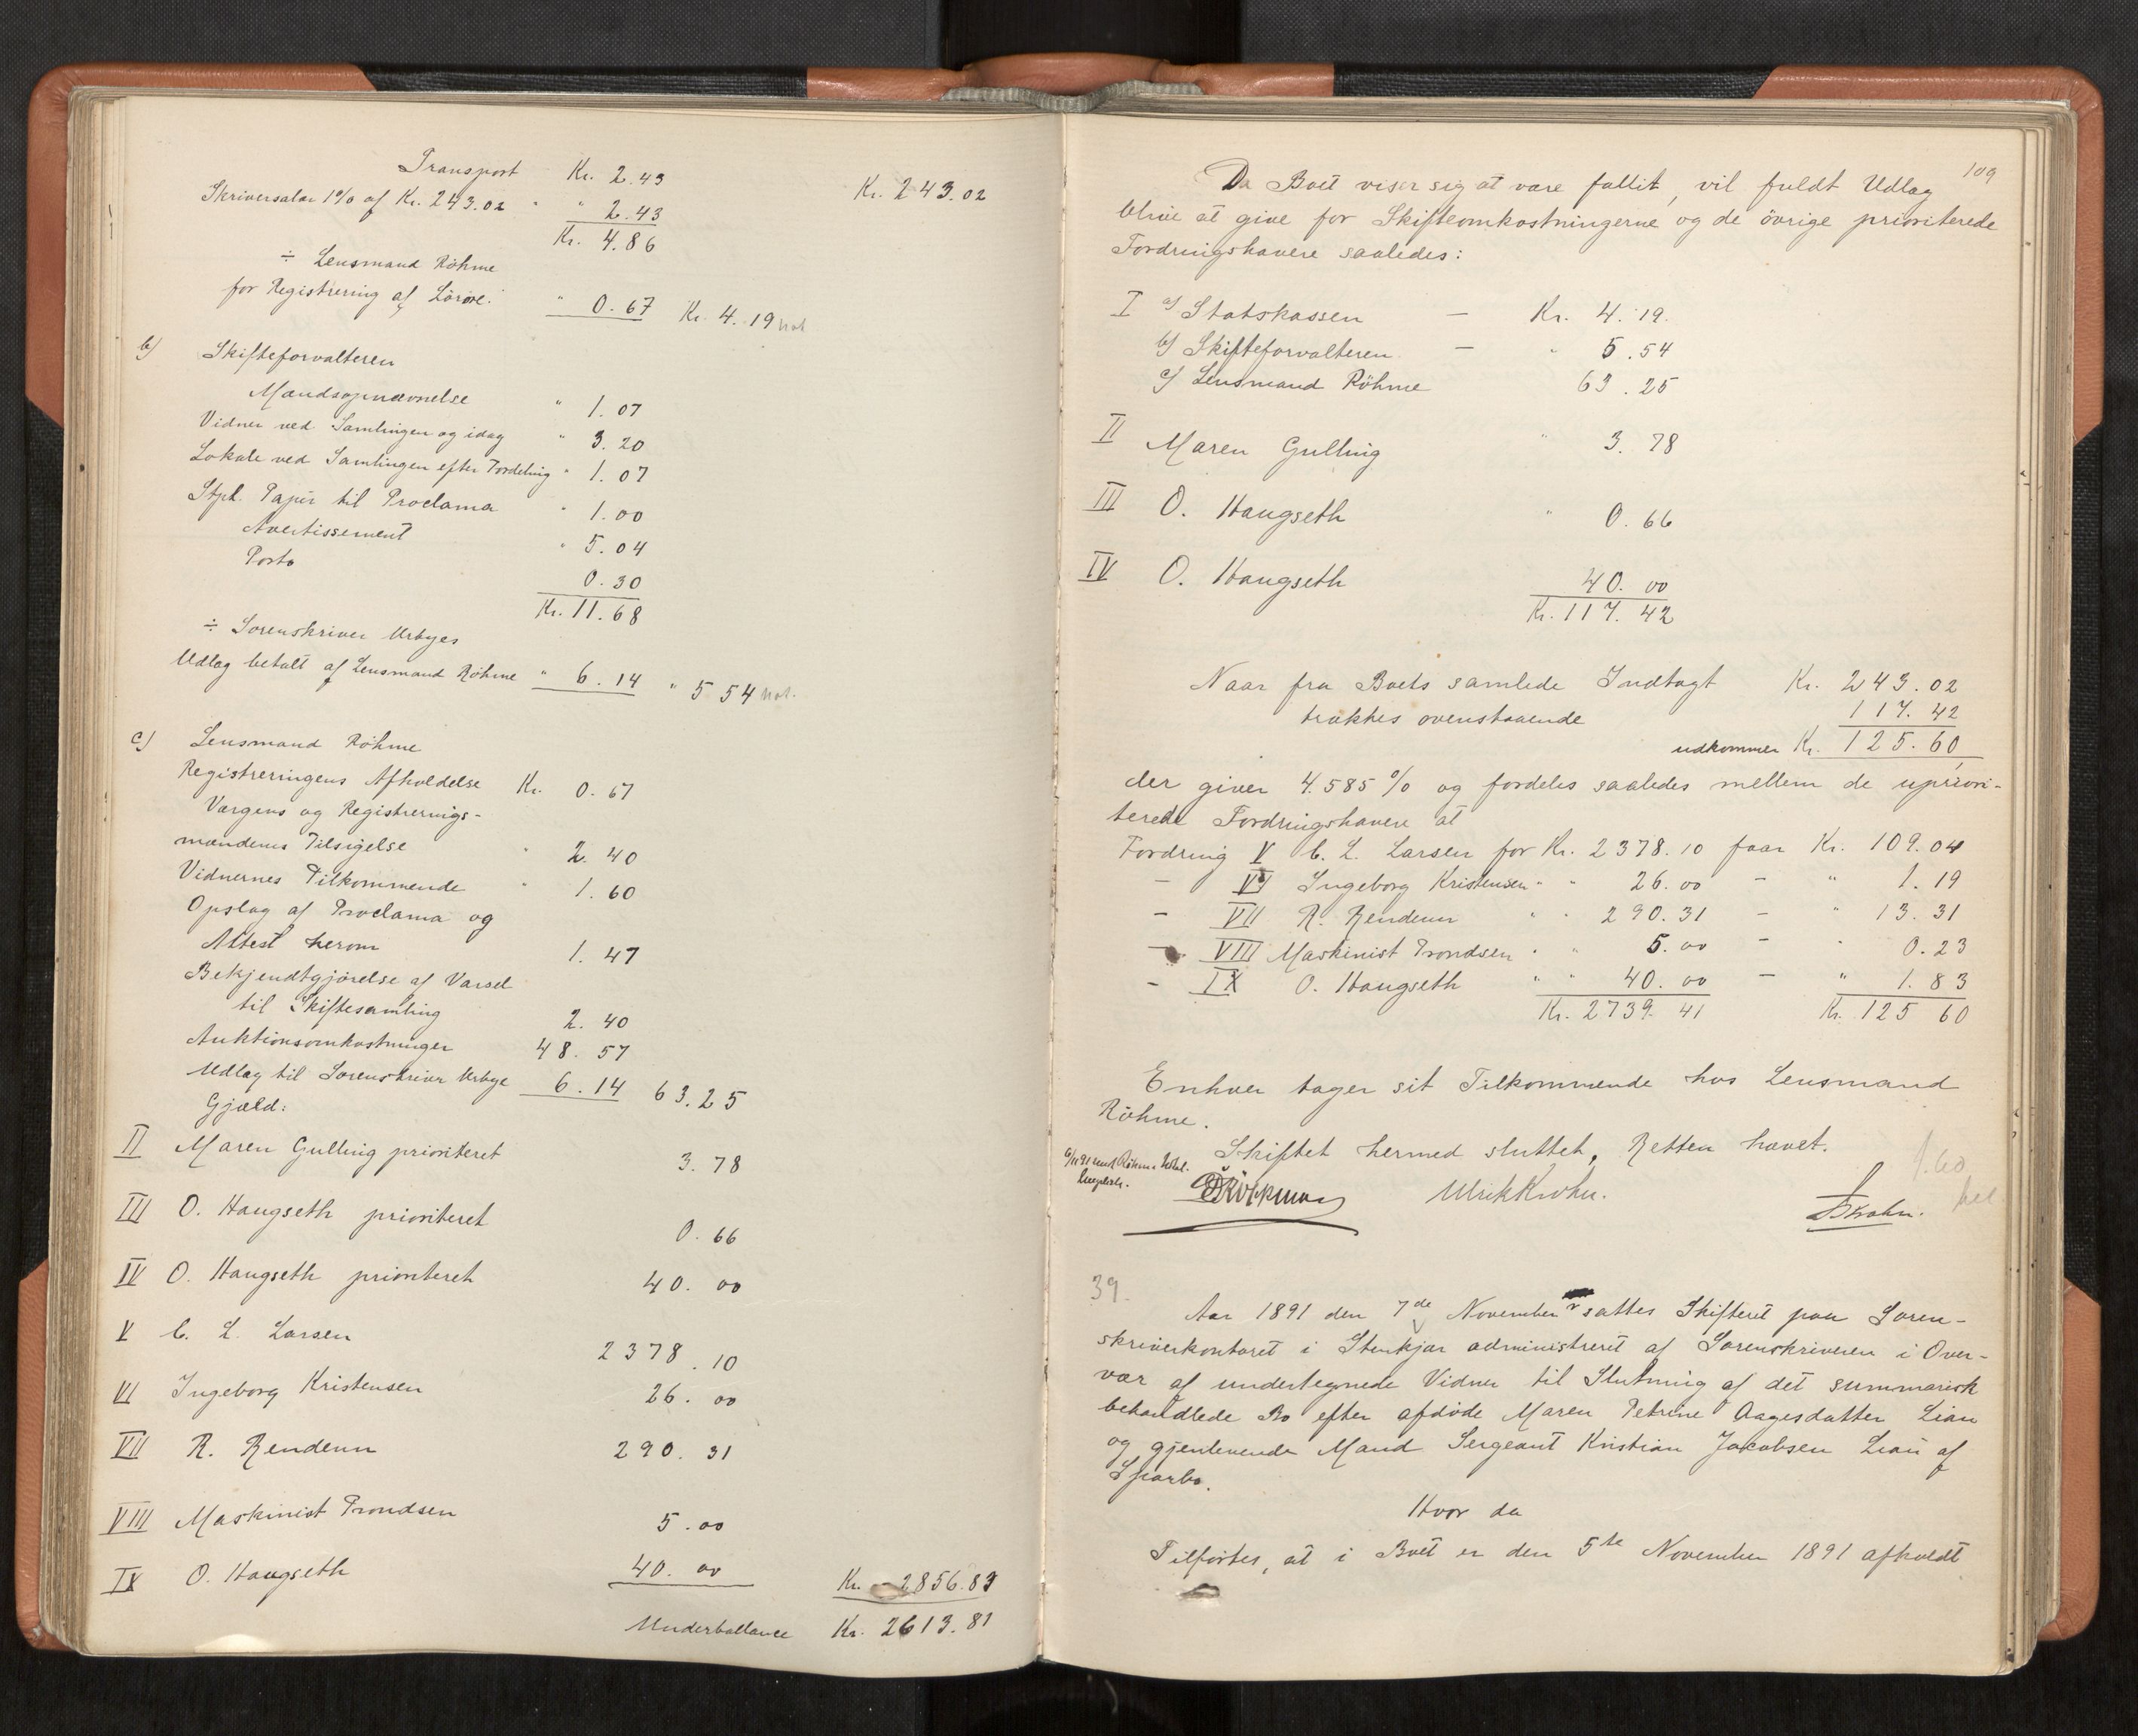 Transport Kr. 2.43 Kr. 243.02
Skriversalær 1% af Kr. 243.02 " " 2.43
Kr. 4.86
÷ Lensmand Röhme
for Registrering af Lösöre. " 0.67 Kr. 4.19
b) Skifteforvalteren
Mandsopnævnelse " 1.07
Vidner ved Samlingen og idag " 3.20
Lokale ved Samlingen efter Fordeling " 1.07
Stpl. Papir til Proclama " 1.00
Avertissement " 5.04
Porto 0.30
Kr. 11.68
÷ Sorenskriver Urbyes
Udlæg betalt af Lensmand Röhme " 6.14 " 5 54
c) Lensmand Röhme
Registreringens Afholdelse Kr. 0.67
Værgens og Registrerings-
mændenes Tilsigelse " 2.40
Vidnernes Tilkommende " 1.60
Opslag af Proclama og
Attest herom 1.47
Bekjendtgjörelse af Varsel
til Skiftesamling 2.40
Auktionsomkostninger 48.57
Udlæg til Sorenskriver Urbye 6.14 63.25
Gjæld:
II Maren Gulling prioriteret 3.78
III O. Haugseth prioriteret 0.66
IV O. Haugseth prioriteret 40.00
V C. L. Larsen 2378.10
VI Ingeborg Kristensen 26.00
VII R. Rendem 290.31
VIII Maskinist Trondsen 5.00
IX O. Haugseth 40.00 Kr. 2856.83
Underballance Kr. 2613.81
109
Da Boet viser sig at være fallit, vil fuldt Udlæg
blive at give for Skifteomkostningerne og de övrige prioriterede
Fordringshavere saaledes:
I a) Statskassen — Kr. 4.19.
b) Skifteforvalteren — " 5.54
c) Lensmand Röhme 63.25
II Maren Gulling " 3.78
III O. Haugseth " 0.66
IV O. Haugseth 40.00
Kr. 117.42
Naar fra Boets samlede Indtægt Kr. 243.02
trækkes ovenstaaende 117.42
udkommer Kr. 125.60
der giver 4.585% og fordeles saaledes mellem de upriori-
terede Fordringshavere at
Fordring V C. L. Larsen for Kr. 2378.10 faar Kr. 109.04
— VI Ingeborg Kristensen " " 26.00 — " 1.19
— VII R. Rendem " " 290.31 — " 13.31
— VIII Maskinist Trondsen " " 5.00 — " 0.23
— IX O. Haugseth " " 40.00 — " 1.83
Kr. 2739.41 Kr. 125 60
Enhver tager sit Tilkommende hos Lensmand
Röhme.
Skiftet hermed sluttet, Retten hævet.
Ulrik Krohn.
Krohn.
39.
Aar 1891 den 7de November sattes Skifteret paa Soren-
skriverkontoret i Stenkjær administreret af Sorenskriveren i Over-
vær af undertegnede Vidner til Slutning af det summarisk
behandlede Bo efter afdöde Maren Petrine Aagesdatter Lian
og gjenlevende Mand Sergeant Kristian Jacobsen Lian af
Sparbo.
Hvor da
Tilförtes, at i Boet er den 5te November 1891 afholdt